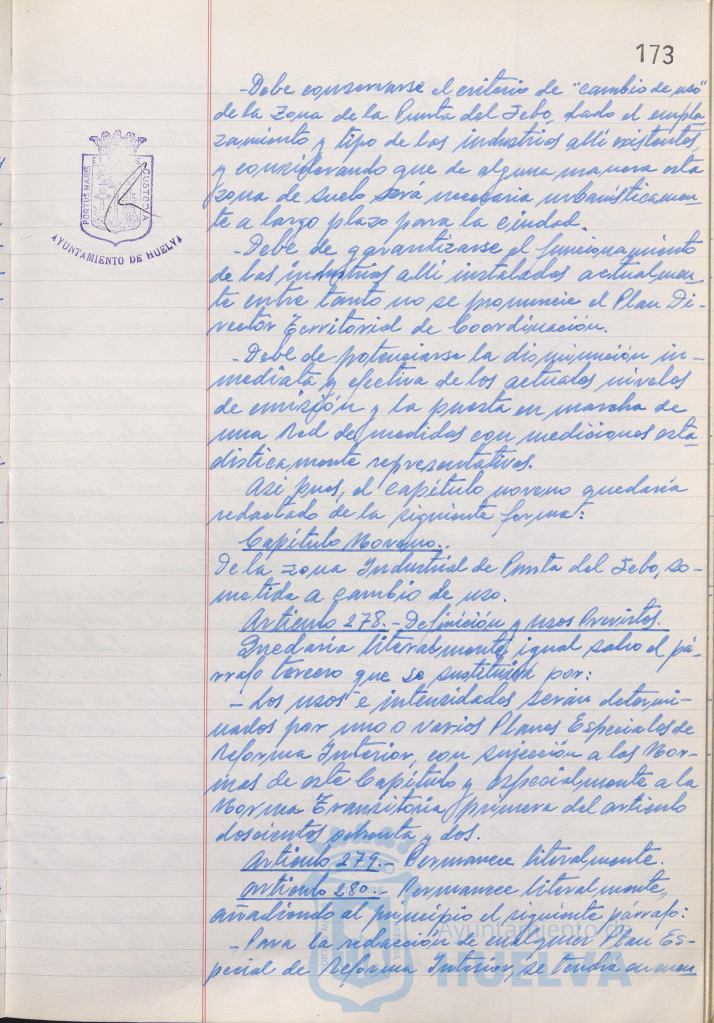 173
-Debe conservarse el criterio de "cambio de uso"
de la zona de la Punta del Sebo, dado el empla-
zamiento y tipo de las industrias allí existentes,
y considerando que de alguna manera esta
zona de suelo será necesaria urbanísticamen-
te a largo plazo para la ciudad.
-Debe de garantizarse el funcionamiento
de las industrias allí instaladas actualmen-
te entre tanto no se pronuncie el Plan Di-
rector Territorial de Coordinación.
-Debe de potenciarse la disminución in-
mediata y efectiva de los actuales niveles
de emisión y la puesta en marcha de
una Red de medidas con mediciones esta-
disticamente representativas.
Asi pues, el capítulo noveno quedaría
redactado de la siguiente forma:
Capítulo Noveno.
De la zona Industrial de Punta del Sebo, so-
metida a cambio de uso.
Artículo 278.- Definición y usos Previstos.
Quedaría literalmente igual salvo el pá-
rrafo tercero que se sustituirá por:
- Los usos e intensidades serán determi-
nados por uno o varios Planes Especiales de
Reforma Interior, con sujección a las Nor-
mas de este Capítulo y especialmente a la
Norma Transitoria primera del artículo
doscientos ochenta y dos.
Artículo 279.- Permanece literalmente.
Artículo 280.- Permanece literalmente,
añadiendo al principio el siguiente párrafo:
-Para la redacción de cualquier Plan Es-
pecial de Reforma Interior, se tendrá en cuen
PORTUS MARIS
ET
CUSTODIA
AYUNTAMIENTO DE HUELVA
Ayuntamiento de
HUELVA